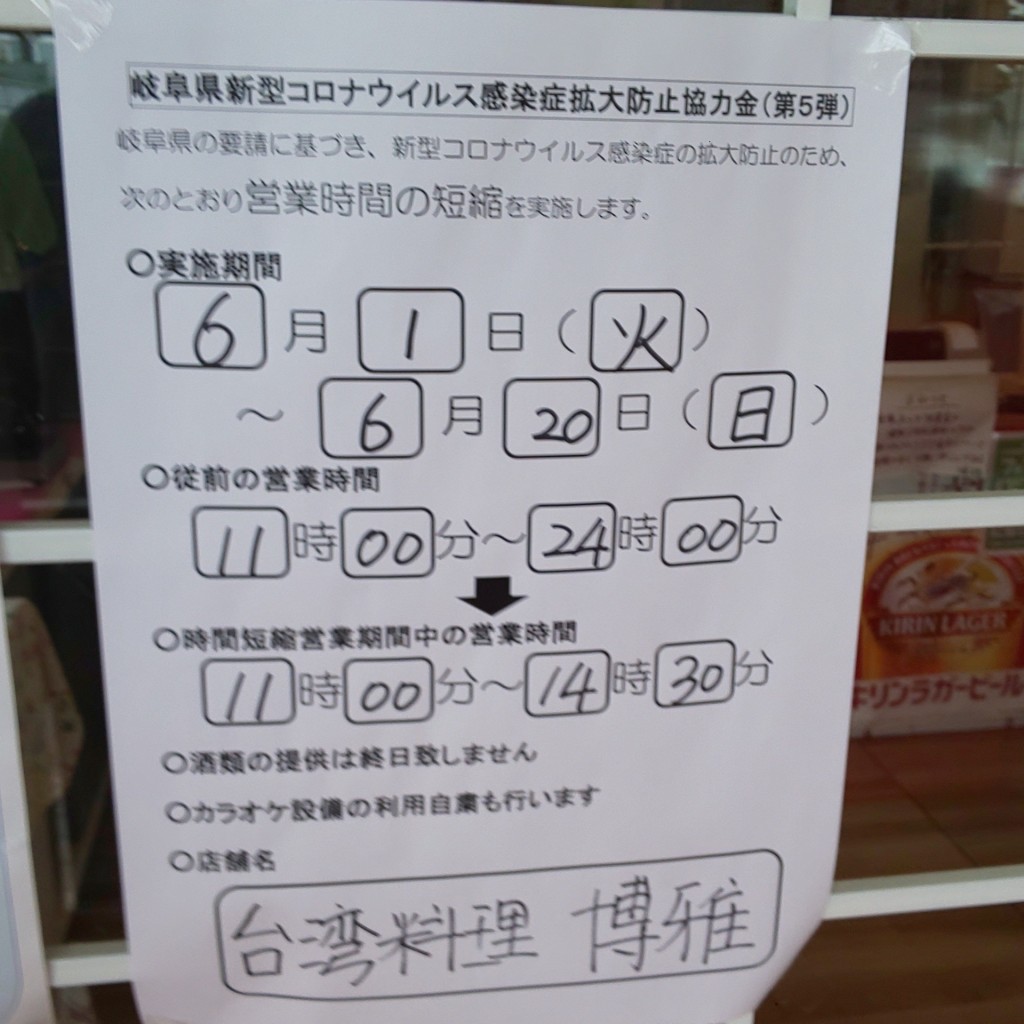 岐阜県新型コロナウイルス感染症拡大防止協力金(第5弾)
岐阜県の要請に基づき、新型コロナウイルス感染症の拡大防止のため、
次のとおり営業時間の短縮を実施します。
○実施期間
6月1日(火)
～6月20日(日)
○従前の営業時間
11時00分～24時00分
○時間短縮営業期間中の営業時間
11時00分～14時30分
○酒類の提供は終日致しません
○カラオケ設備の利用自粛も行います
○店舗名
台湾料理 博雅
KIRIN LAGER
キリンラガービール